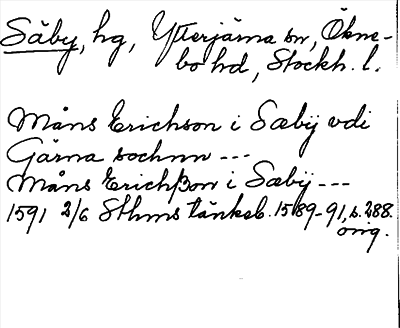 Säby, hg, Ytterjärna sn, Ökne-
bo hd, Stockh. l.
Måns Erichson i Sæbij vdi
Gärna sochnn ---
Måns Erichßon i Sæbij ---
1591 2/6 Sthms tänkeb. 1589-91, s. 288.
orig.